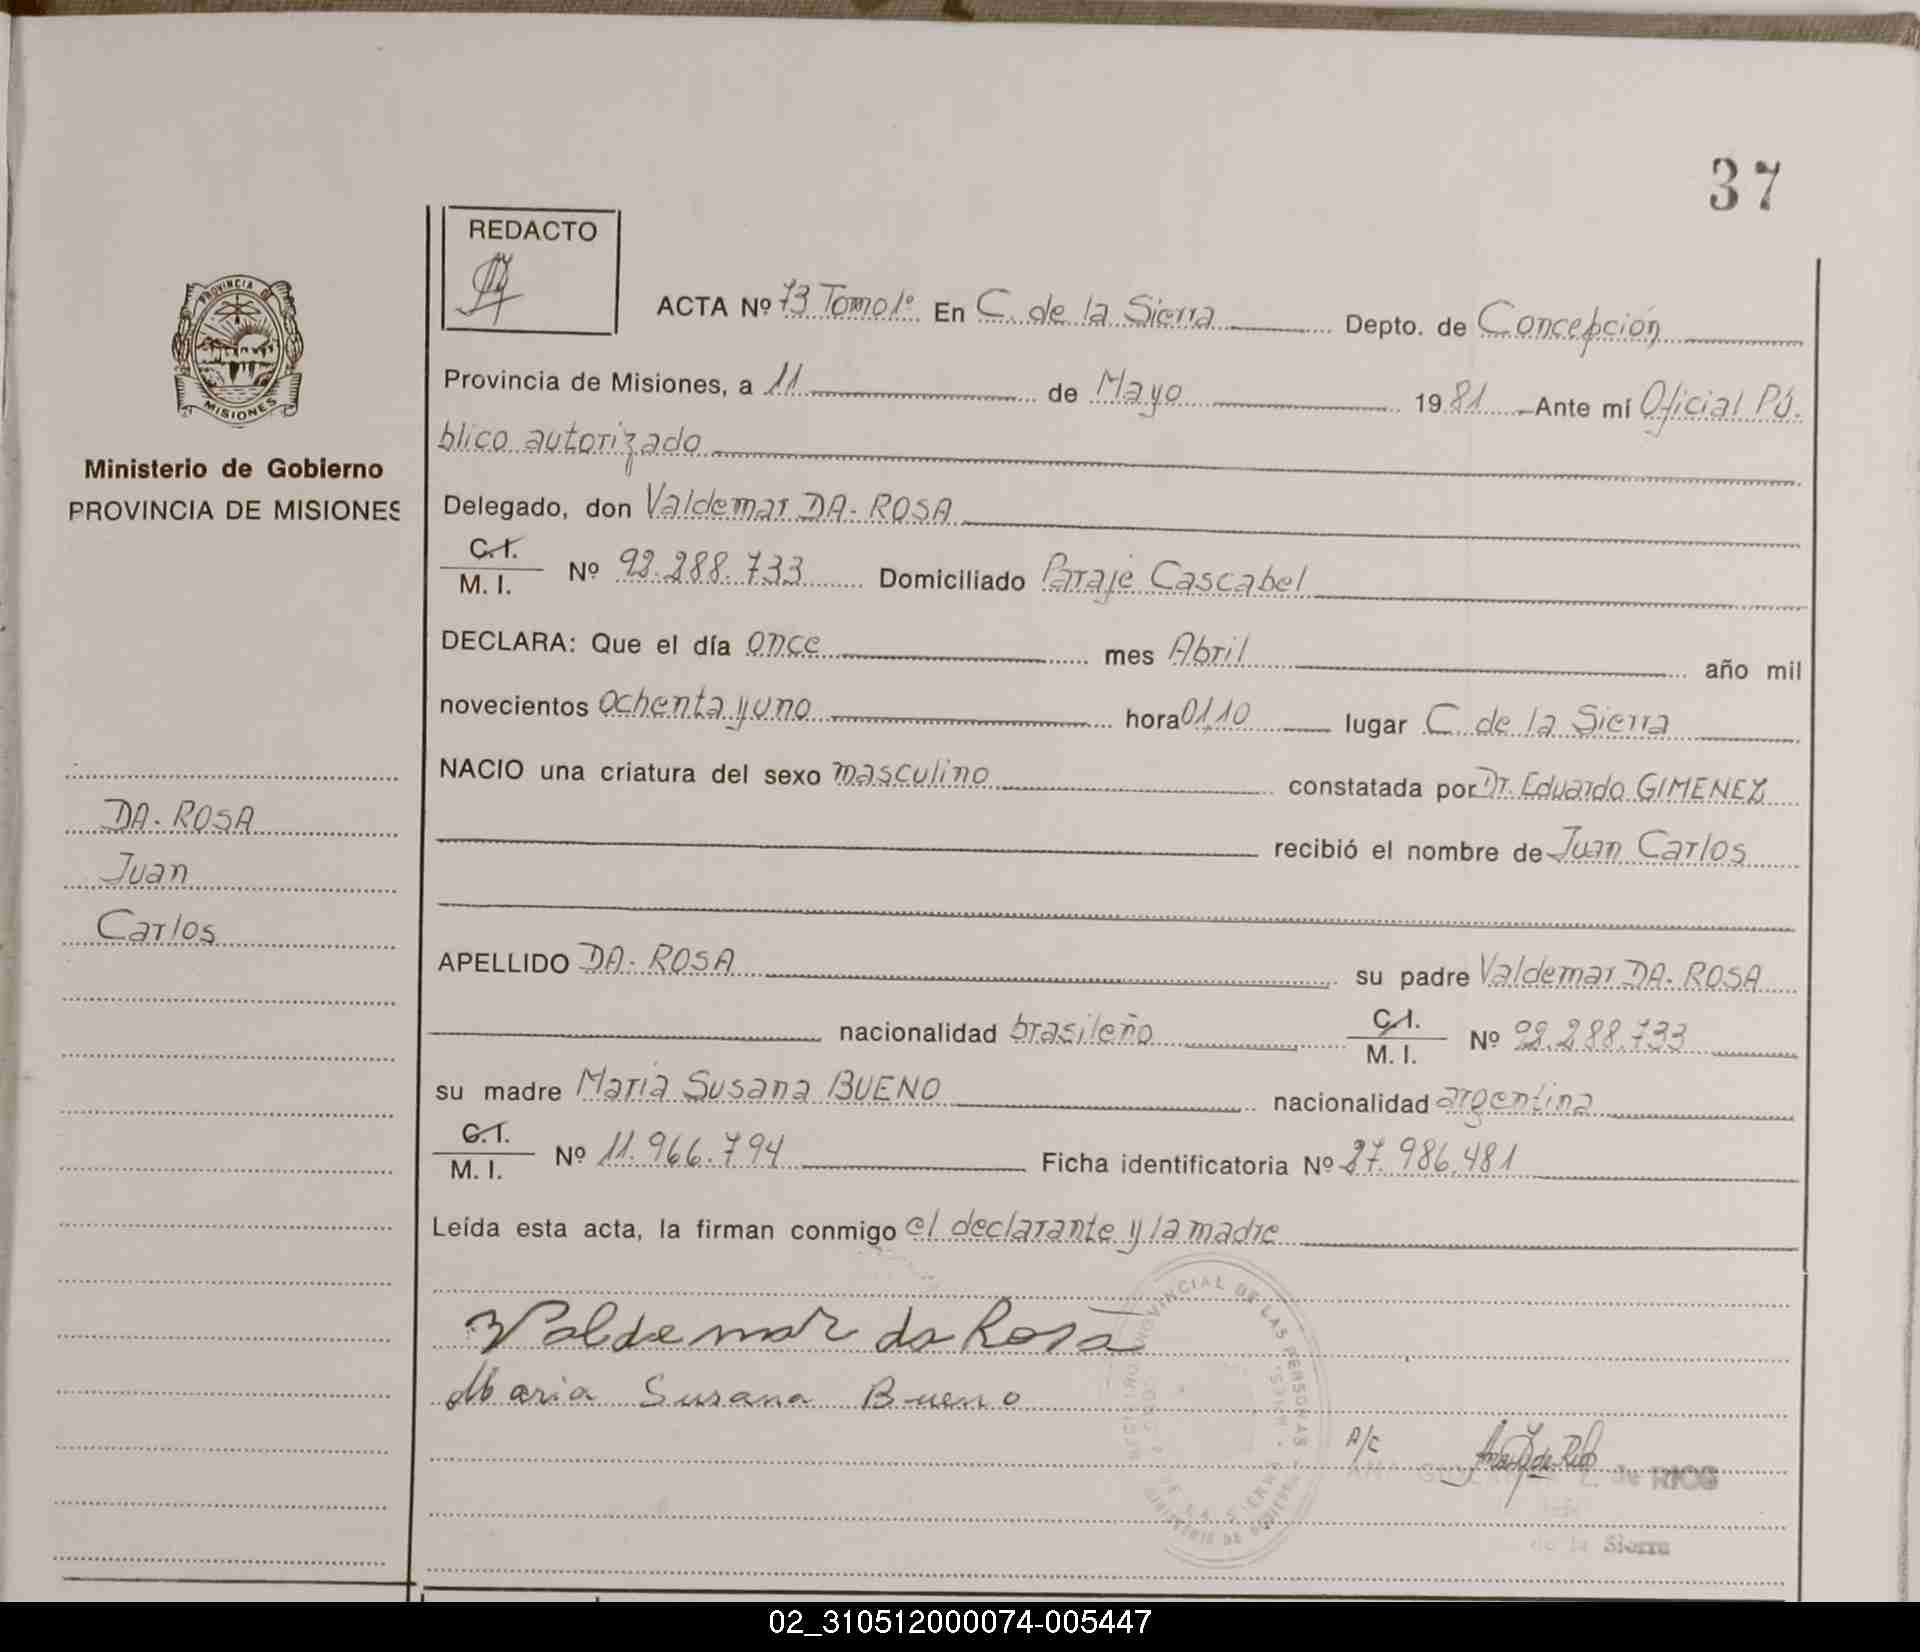 37
REDACTO
PROVINCIA DE
MISIONES
Ministerio de Gobierno
PROVINCIA DE MISIONES
DA-ROSA
Juan
Carlos
ACTA Nº 73 Tomo 1º En C. de la Sierra Depto. de Concepción
Provincia de Misiones, a 11 de Mayo 1981 Ante mí Oficial Pú-
blico autorizado
Delegado, don Valdemar DA-ROSA
C.I.
M. I. Nº 92.288.733 Domiciliado Paraje Cascabel
DECLARA: Que el día once mes Abril año mil
novecientos ochenta y uno hora 01,10 lugar C. de la Sierra
NACIO una criatura del sexo masculino constatada por Dr. Eduardo GIMENEZ
recibió el nombre de Juan Carlos
APELLIDO DA-ROSA su padre Valdemar DA-ROSA
nacionalidad brasileño C.I.
M. I. Nº 92.288.733
su madre Maria Susana BUENO nacionalidad argentina
C.I.
M. I. Nº 11.966.794 Ficha identificatoria Nº 27.986.481
Leída esta acta, la firman conmigo el declarante y la madre
Valdemar da Rosa
Maria Susana Bueno
PROVINCIAL DE LAS PERSONAS
A/C
de RIOS
de la Sierra
02_310512000074-005447